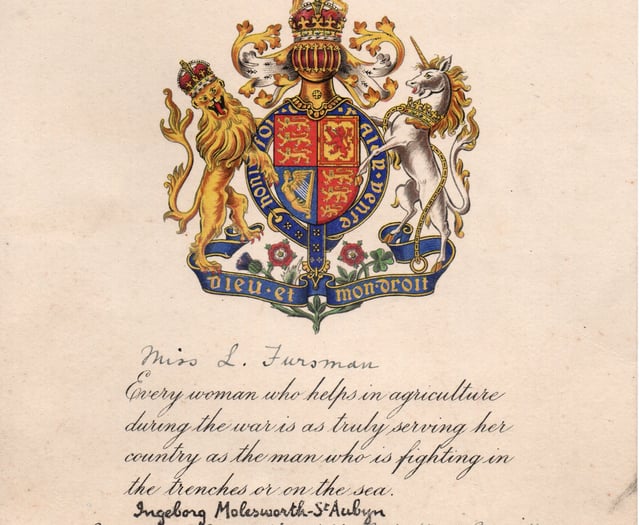 honi soi
mal y pense
Dieu·et mon·droit
Miss L. Fursman
Every woman who helps in agriculture
during the war is as truly serving her
country as the man who is fighting in
the trenches or on the sea.
Ingeborg Molesworth-St Aubyn